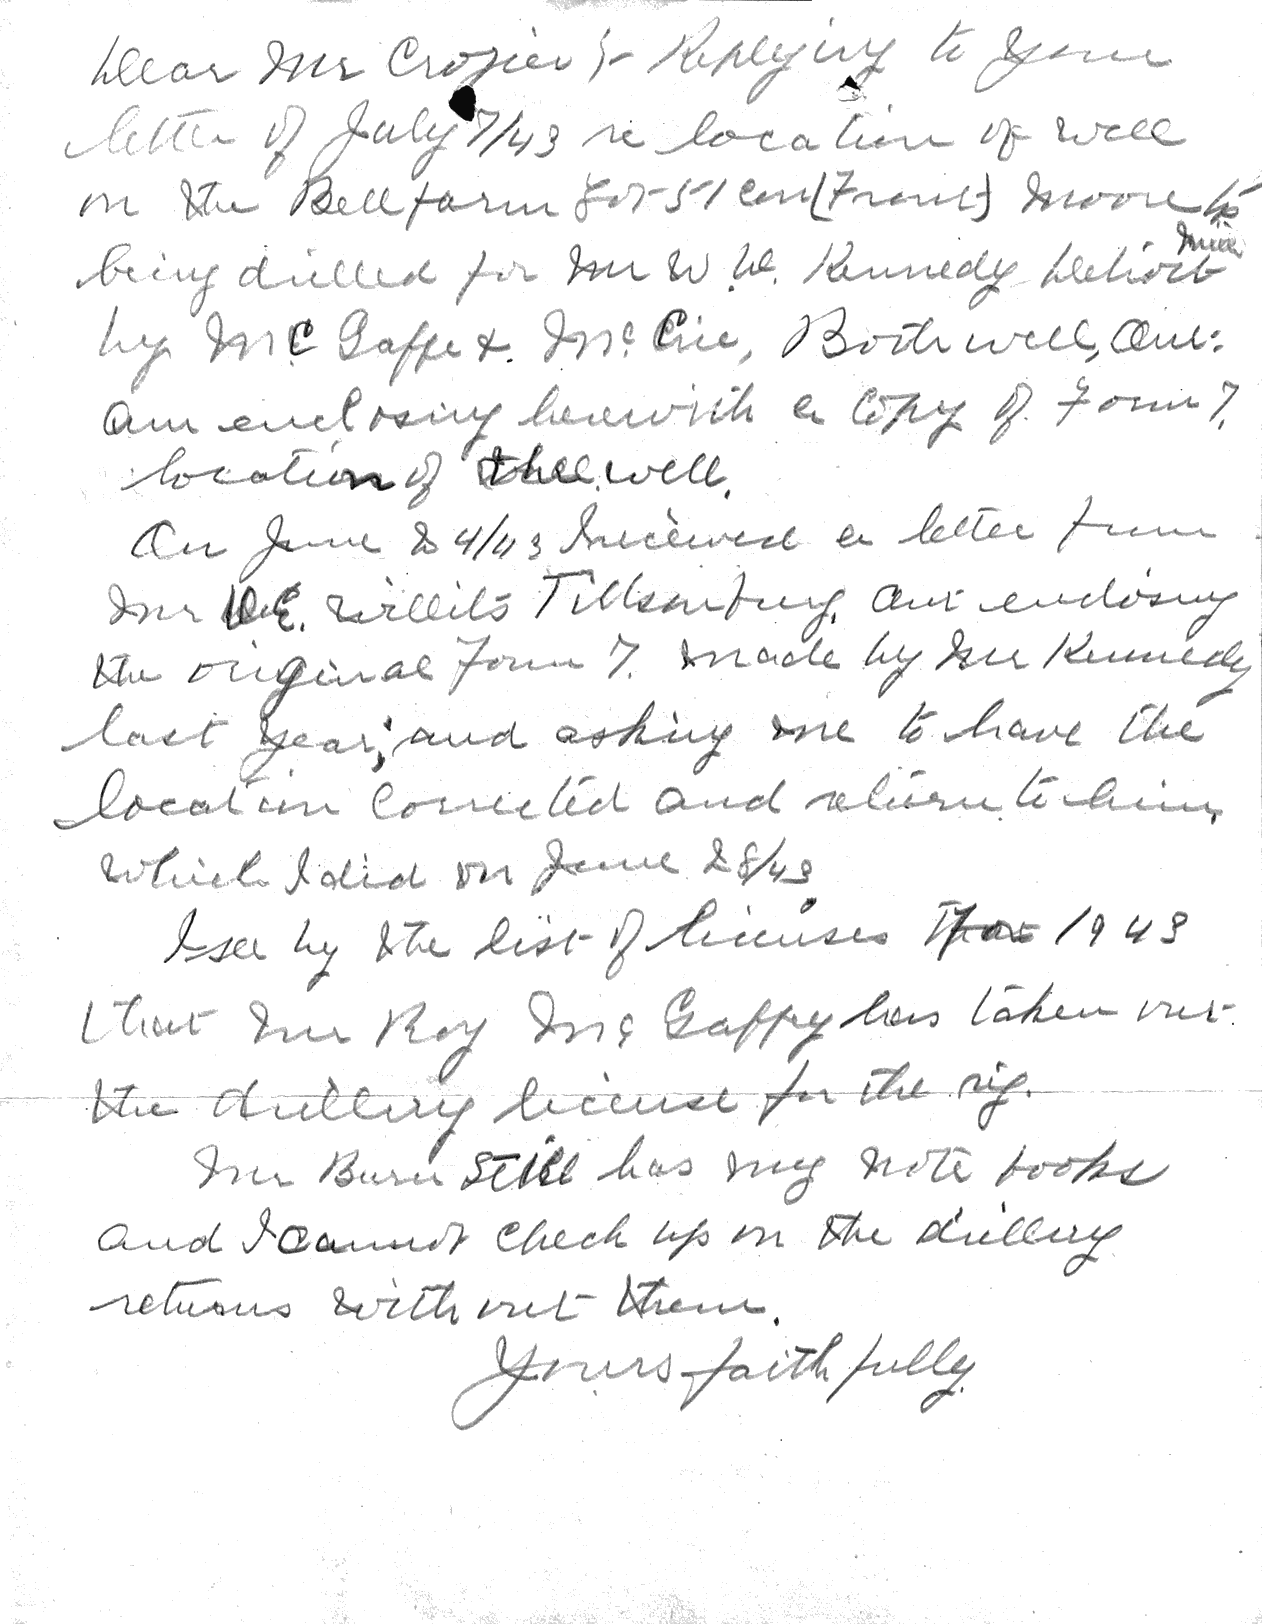 Dear Mr Crozier :- Replying to your
letter of July 7/43 re location of well
on the Bell farm Lot 51 Con (Front) Moore tp
being drilled for Mr W. W. Kennedy Detroit Mich
by McGaffe & McCrie, Bothwell, Ont.
Am enclosing herewith a copy of Form 7,
location of the well.
On June 24/43 I received a letter from
Mr Willits Tillsonburg, Ont enclosing
the original Form 7. made by Mr Kennedy
last year; and asking me to have the
location corrected and return to him,
which I did on June 28/43
I see by the list of licenses for 1943
that Mr Roy McGaffey has taken out
the drilling license for the rig.
Mr still has my note books
and I cannot check up on the drilling
returns without them.
Yours faithfully